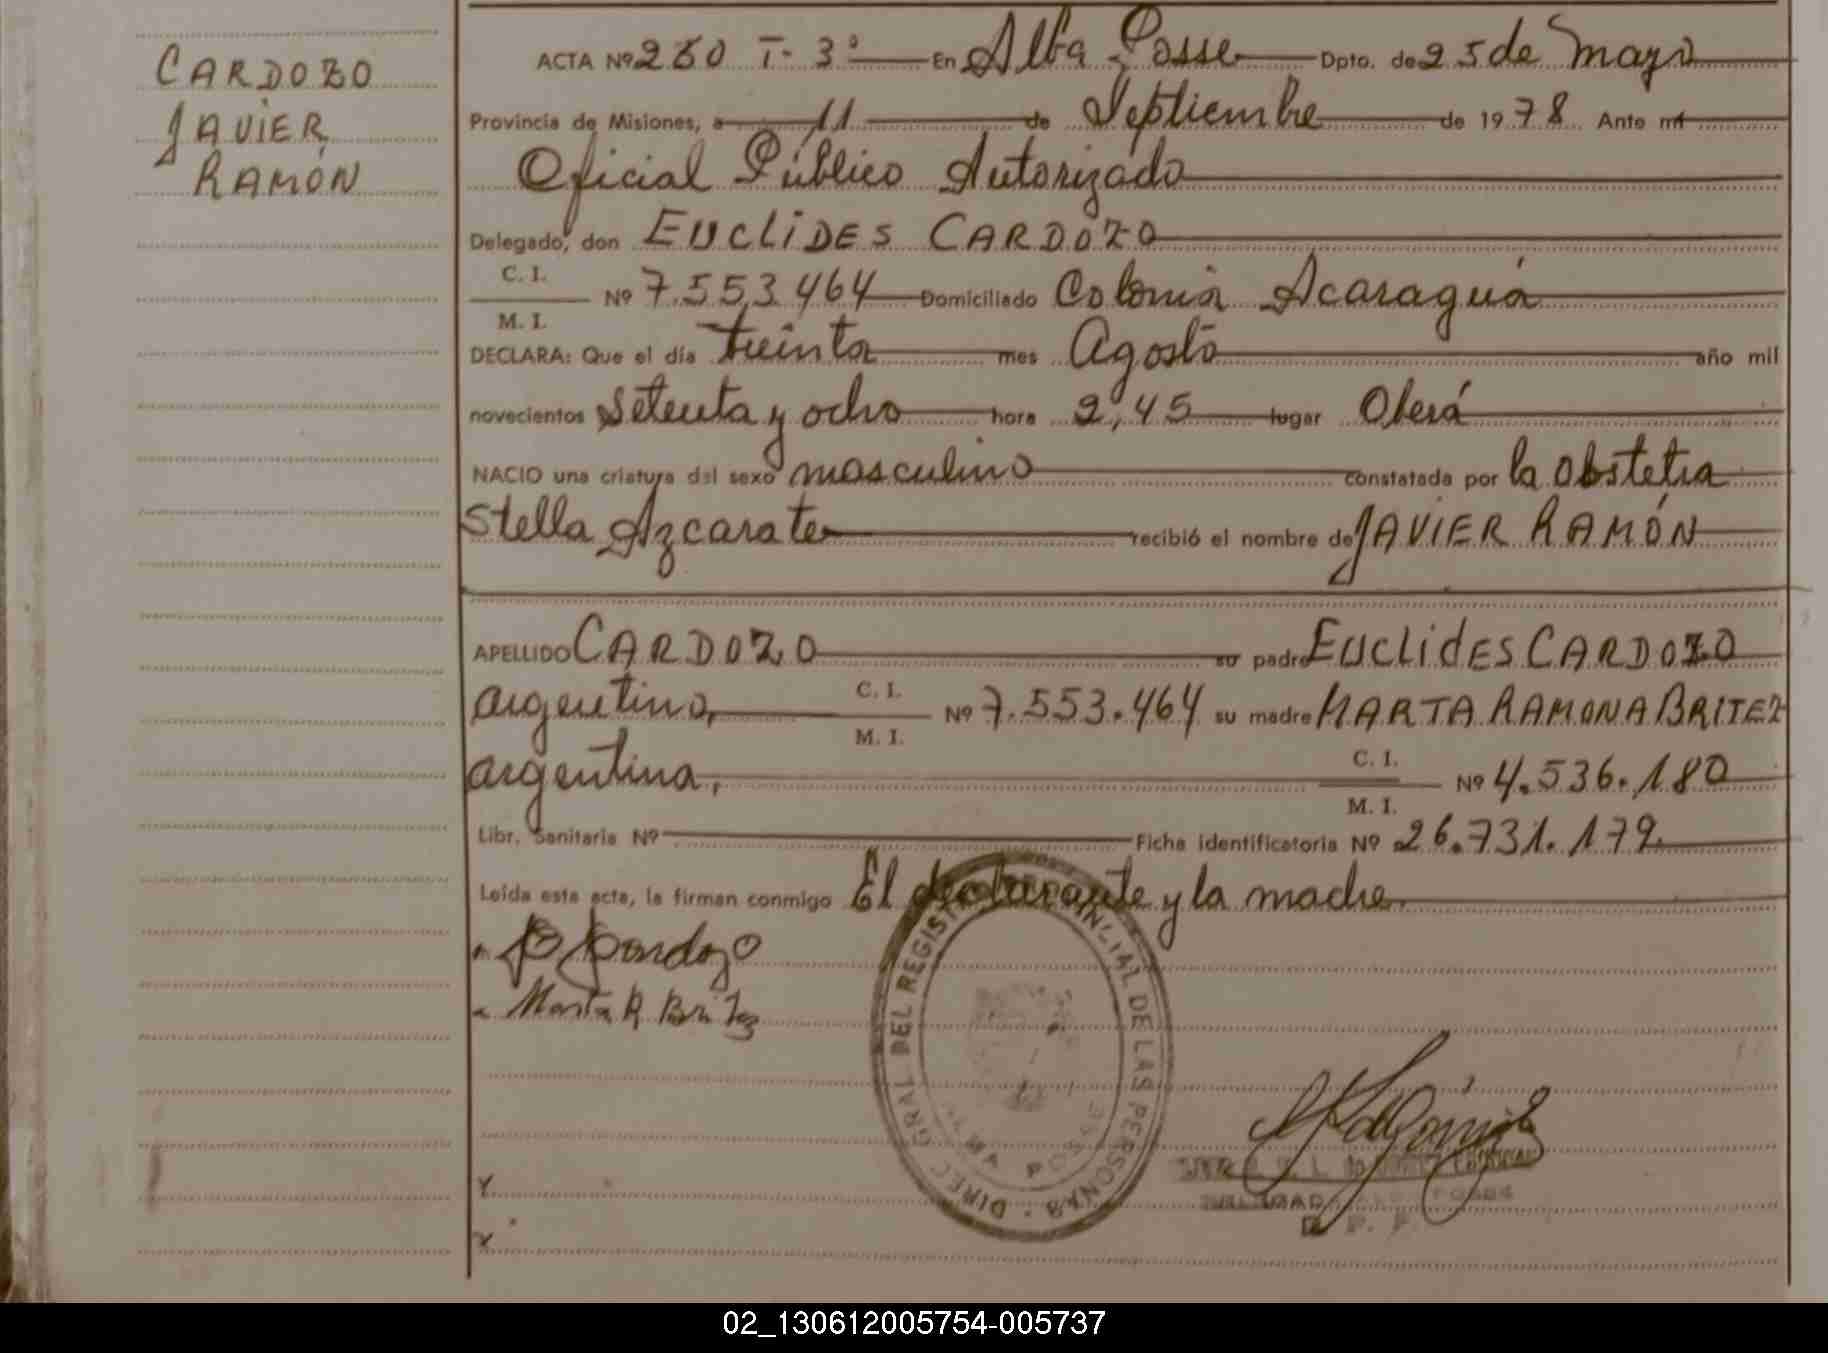 CARDOZO
JAVIER
RAMÓN
ACTA Nº 260 T- 3º En Alba Posse Dpto. de 25 de Mayo
Provincia de Misiones, a 11 de Septiembre de 1978 Ante mí
Oficial Público Autorizado
Delegado, don EUCLIDES CARDOZO
C. I.
M. I.
Nº 7.553.464 Domiciliado Colonia Acaraguá
DECLARA: Que el día treinta mes Agosto año mil
novecientos Setenta y ocho hora 2,45 lugar Oberá
NACIO una criatura del sexo masculino constatada por la Obstetra
Stella Azcarate recibió el nombre de JAVIER RAMÓN
APELLIDO CARDOZO su padre EUCLIDES CARDOZO
argentino, C. I. M. I. Nº 7.553.464 su madre MARTA RAMONA BRITEZ
argentina, C. I. M. I. Nº 4.536.180
Libr. Sanitaria Nº Ficha identificatoria Nº 26.731.179.
Leída esta acta, la firman conmigo El declarante y la madre.
Cardozo
Marta R Britez
DIREC. GRAL DEL REGISTRO PROVINCIAL DE LAS PERSONAS
ALBA POSSE
02_130612005754-005737